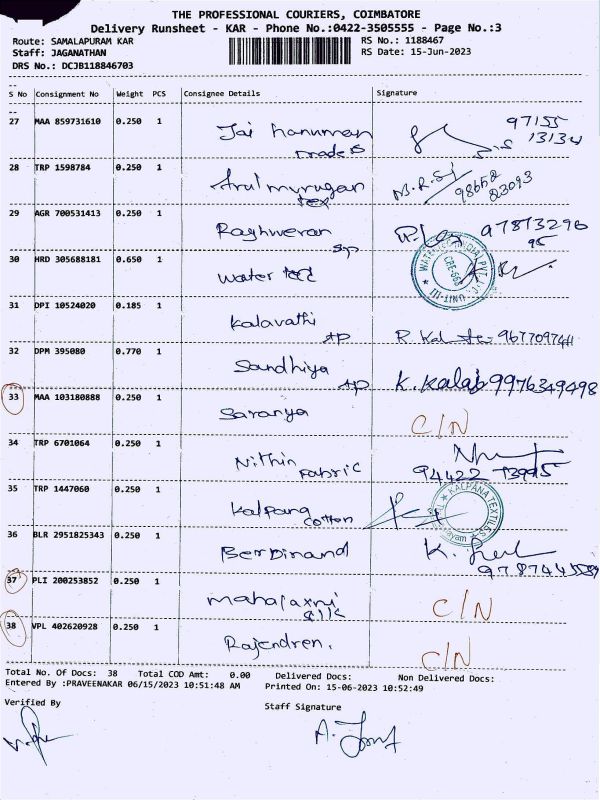 THE PROFESSIONAL COURIERS, COIMBATORE
Delivery Runsheet - KAR - Phone No.:0422-3505555 - Page No.:3
Route: SAMALAPURAM KAR
RS No.: 1188467
Staff: JAGANATHAN
RS Date: 15-Jun-2023
DRS No.: DCJB118846703
S No Consignment No Weight PCS Consignee Details Signature
27 MAA 859731610 0.250 1 Jai hanuman 97155
traders 13134
28 TRP 1598784 0.250 1 Arulmurugan 98652
tex 83093
29 AGR 700531413 0.250 1 Raghveran 97873296
sp 95
30 HRD 305688181 0.650 1 water tec
31 DPI 10524020 0.185 1 Kalavathi
AP 9677097411
32 DPM 395080 0.770 1 Sandhiya
AP K. Kalai 9976349498
33 MAA 103180888 0.250 1 Saranya C/N
34 TRP 6701064 0.250 1 Nithin
Fabric 94422 73995
35 TRP 1447060 0.250 1 Kalpana
cotton KALPANA TEXTILES
36 BLR 2951825343 0.250 1 Berdinand
37 PLI 200253852 0.250 1 mahalaxmi C/N
silk
38 VPL 402620928 0.250 1 Rajendren. C/N
Total No. Of Docs: 38 Total COD Amt: 0.00 Delivered Docs: Non Delivered Docs:
Entered By :PRAVEENAKAR 06/15/2023 10:51:48 AM Printed On: 15-06-2023 10:52:49
Verified By Staff Signature